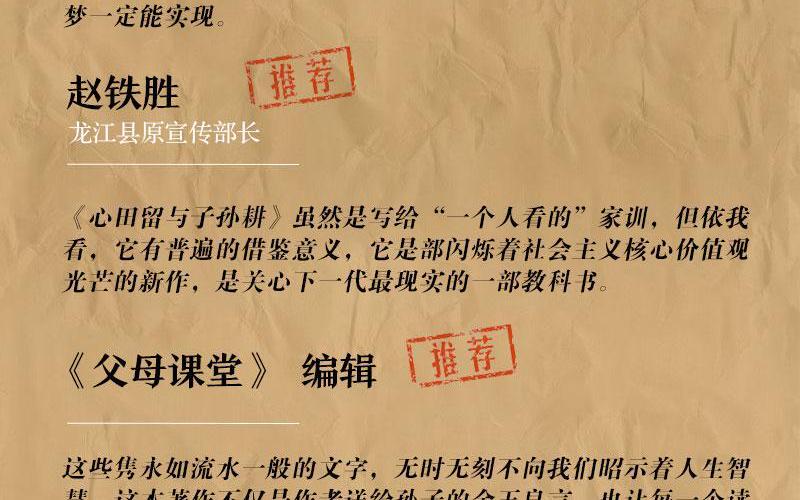 梦一定能实现。
赵铁胜
推荐
龙江县原宣传部长
《心田留与子孙耕》虽然是写给“一个人看的”家训，但依我
看，它有普遍的借鉴意义，它是部闪烁着社会主义核心价值观
光芒的新作，是关心下一代最现实的一部教科书。
《父母课堂》 编辑
推荐
这些隽永如流水一般的文字，无时无刻不向我们昭示着人生智
慧。这本著作不仅是作者送给孙子的金玉良言，也让每一个读